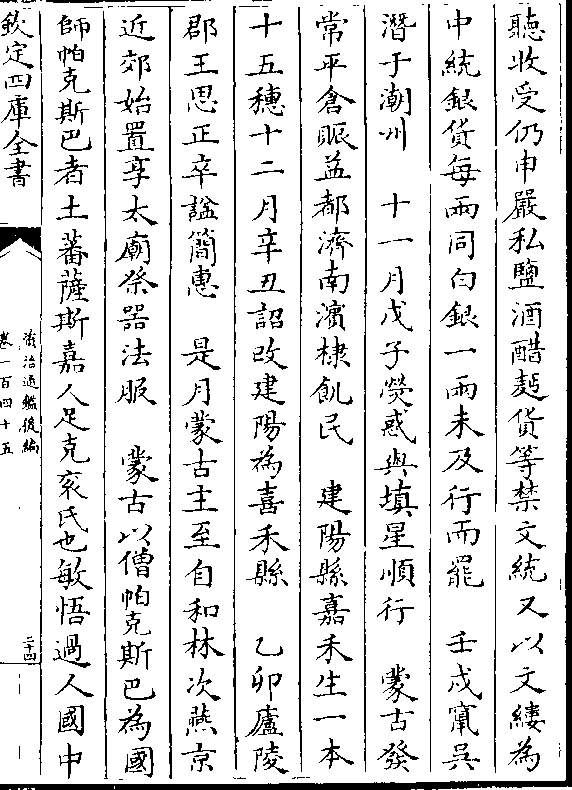 聽收受仍申嚴私鹽酒醋麴貨等禁文統又以文縷為
中統銀貨每兩同白銀一兩未及行而罷　壬戍竄吳
潛于潮州　十一月戊子熒惑與填星順行　蒙古發
常平倉賑益都濟南濱棣飢民　建陽縣嘉禾生一本
十五穗十二月辛丑詔改建陽為喜禾縣　乙卯廬陵
郡王思正卒諡簡惠　是月蒙古主至自和林次燕京
近郊始置享太廟祭器法服　蒙古以僧帕克斯巴為國
師帕克斯巴者土蕃薩斯嘉人足克衮氏也敏悟過人國中
欽定四庫全書
資治通鑑後編
卷一百四十五
二十四